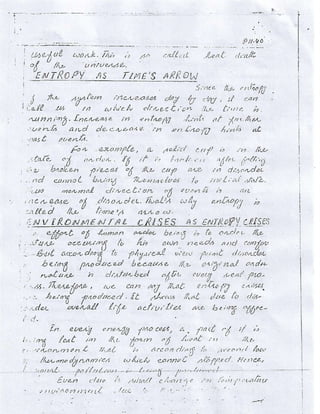 P11-40
useful work. This is so called heat death
of the universe.
ENTROPY AS TIME'S ARROW
Since the entropy
of the system increases day by day, it can
tell us in which direction the time is
running. Increase in entropy hints at further
events and decrease in entropy hints at
past events.
For example, a solid cup is in the
state of order. If it is broken after falling
the broken pieces of the cup are in disorder
and cannot bring themselves to initial state.
thus normal direction of events is an
increase of disorder. That's why entropy is
called the time's arrow.
ENVIRONMENTAL CRISES AS ENTROPY CRISES
effort of human being is to order the
nature according to his own needs and comfort
But according to physical view point disorder
is being produced because the original order
nature is disturbed after every real
process. Therefore, we can say that entropy crises
being produced. It shows that due to
overall life activities are being
In every energy process, a part of it is
being lost in the form of heat in the
environment that is according to second law
thermodynamics which cannot stopped. Hence,
pollution is being
Even due to small change in temperature
environment due to